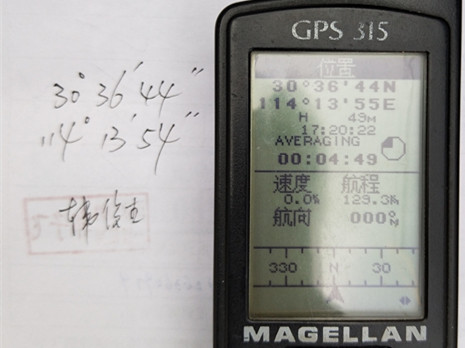 30°36'44"
114°13'54"
GPS 315
位置
30°36'44N
114°13'55E
H 49M
17:20:22
AVERAGING
00:04:49
速度 航程
0.0% 129.3%
航向 000°N
330 N 30
MAGELLAN